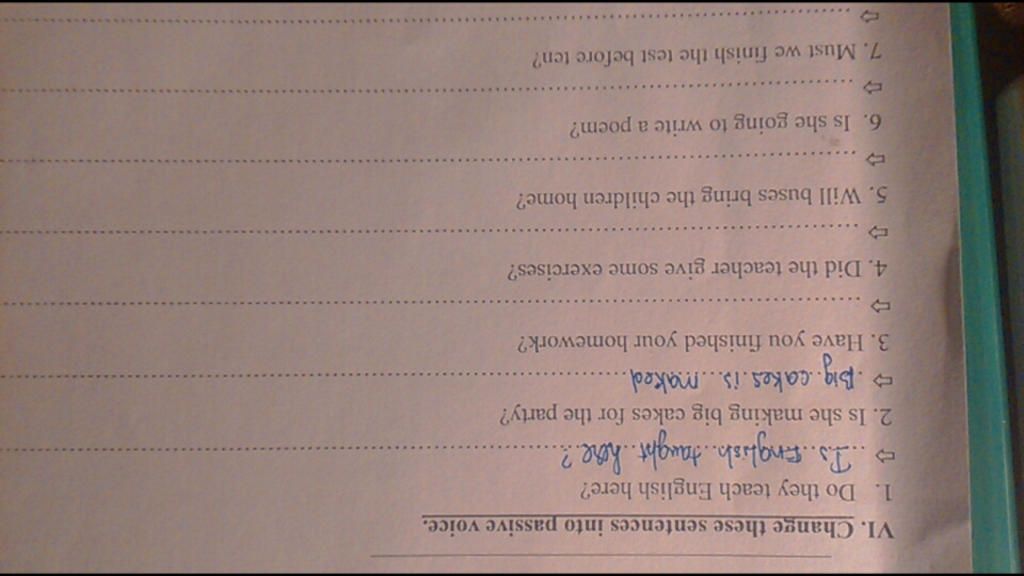 VI. Change these sentences into passive voice.
1. Do they teach English here?
⇨ Is English taught here?
2. Is she making big cakes for the party?
⇨ Big cakes is maked
3. Have you finished your homework?
⇨
4. Did the teacher give some exercises?
⇨
5. Will buses bring the children home?
⇨
6. Is she going to write a poem?
⇨
7. Must we finish the test before ten?
⇨